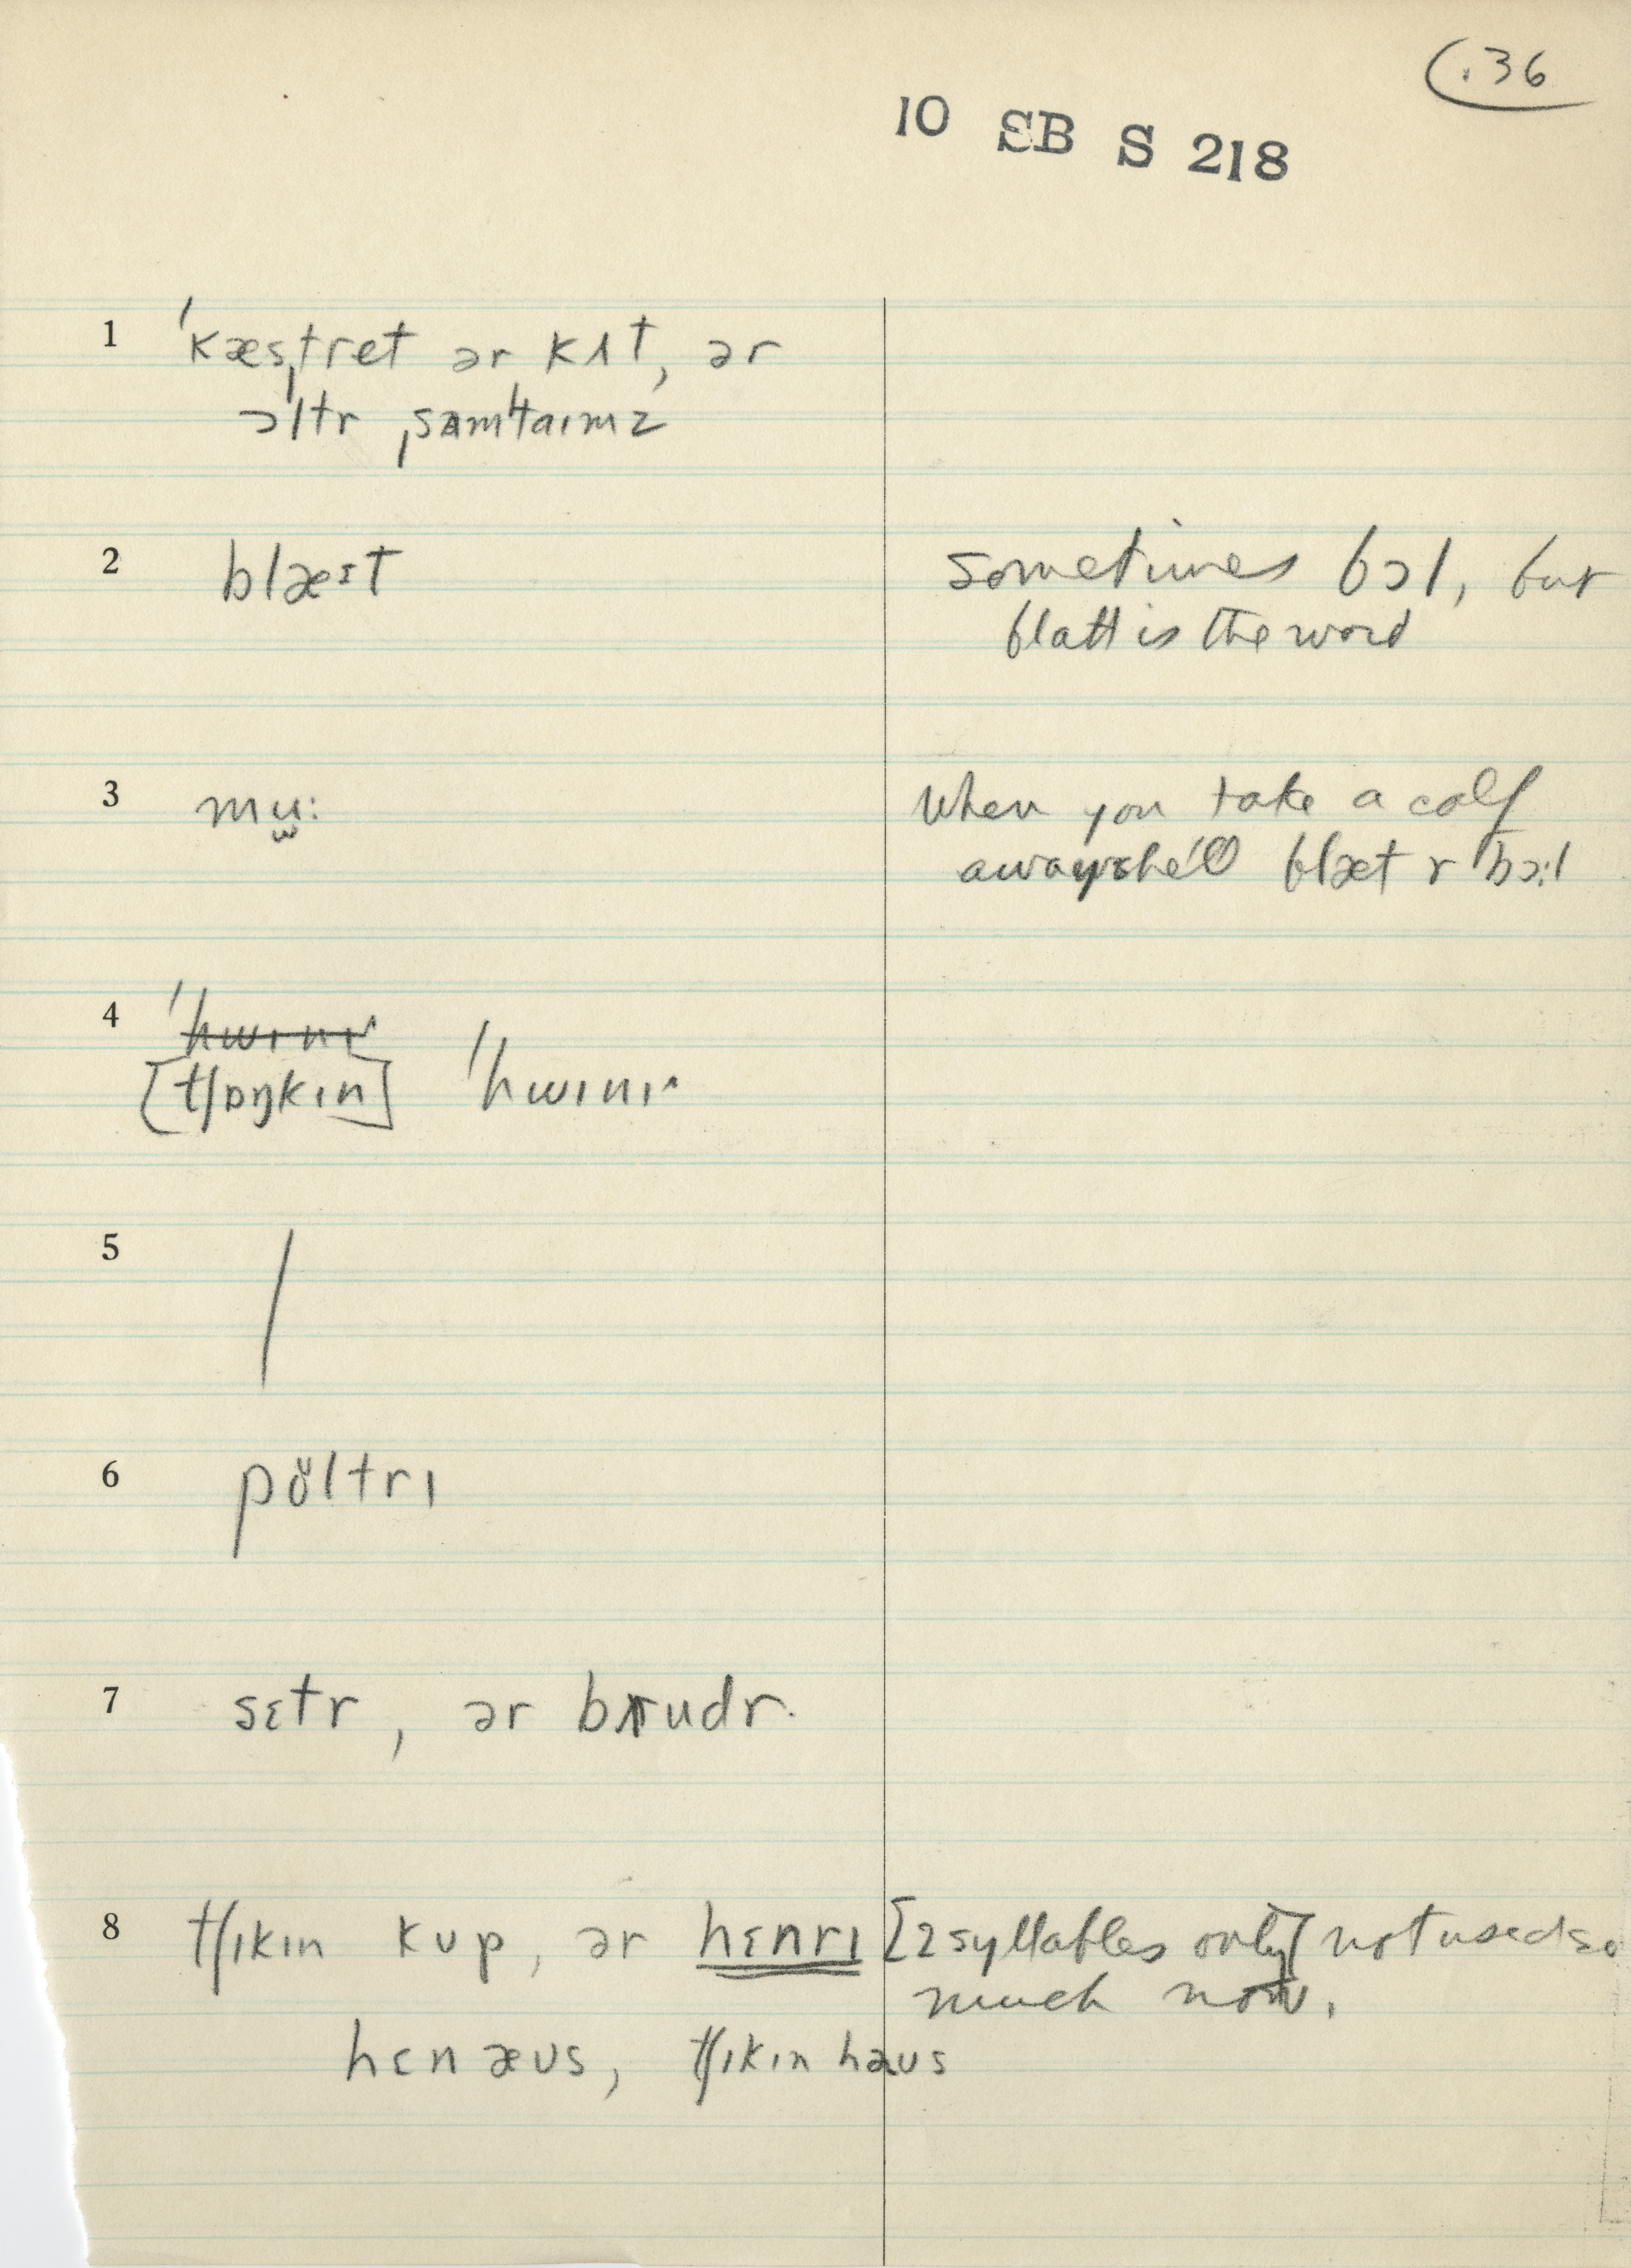 .36
10 SB S 218
1 ˈkæsˌtret ər kʌt, ər
ɔltr ˌsʌmˈtaɪmz
2 blæst
sometimes bɔl, but
blatt is the word
3 mu̬:
When you take a calf
away she'll blæt r bɔ:l
4 ˈhwɪnɪ^
[tʃɒŋkɪn] ˈhwɪnɪ^
5 /
6 pöltrɪ
7 sɛtr, ər brudr.
8 tʃɪkɪn kup, ər hɛnrɪ [2 syllables only] not used so
much now.
hɛn æʊs, tʃɪkɪn haʊs